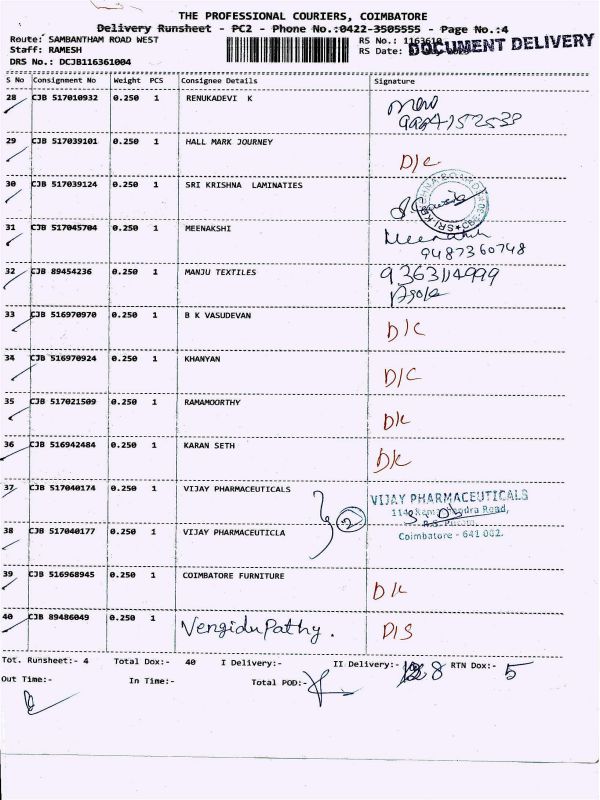 THE PROFESSIONAL COURIERS, COIMBATORE
Delivery Runsheet - PC2 - Phone No.:0422-3505555 - Page No.:4
Route: SAMBANTHAM ROAD WEST
RS No.: 1163610
Staff: RAMESH
RS Date:
DOCUMENT DELIVERY
DRS No.: DCJB116361004
S No Consignment No Weight PCS Consignee Details Signature
28 CJB 517010932 0.250 1 RENUKADEVI K
29 CJB 517039101 0.250 1 HALL MARK JOURNEY D/C
30 CJB 517039124 0.250 1 SRI KRISHNA LAMINATIES
31 CJB 517045704 0.250 1 MEENAKSHI Meenakshi
9487360748
32 CJB 89454236 0.250 1 MANJU TEXTILES 9363114999
33 CJB 516970970 0.250 1 B K VASUDEVAN D/C
34 CJB 516970924 0.250 1 KHANYAN D/C
35 CJB 517021509 0.250 1 RAMAMOORTHY D/C
36 CJB 516942484 0.250 1 KARAN SETH D/C
37 CJB 517040174 0.250 1 VIJAY PHARMACEUTICALS 2 VIJAY PHARMACEUTICALS
Road,
R.S. Puram,
Coimbatore - 641 002.
38 CJB 517040177 0.250 1 VIJAY PHARMACEUTICLA
39 CJB 516968945 0.250 1 COIMBATORE FURNITURE D/C
40 CJB 89486049 0.250 1 Vengidupathy. D/S
Tot. Runsheet:- 4 Total Dox:- 40 I Delivery:- II Delivery:- 8 RTN Dox:- 5
Out Time:- In Time:- Total POD:-